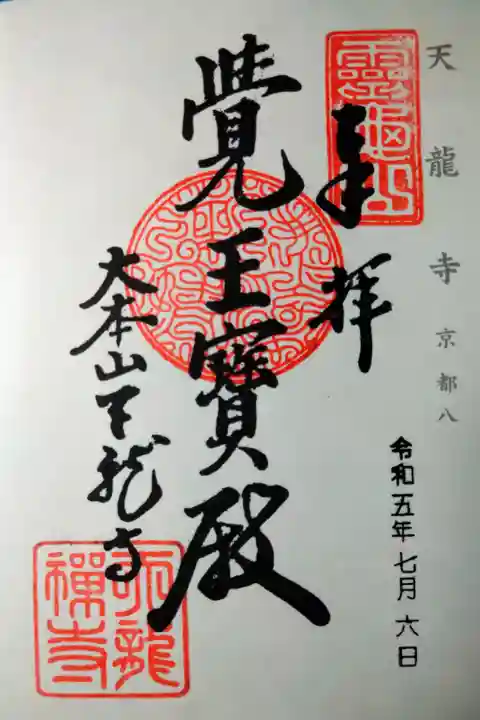 天龍寺 京都八
令和五年七月六日
靈龜山
奉拜
覺王寶殿
大本山天龍寺
天龍禪寺